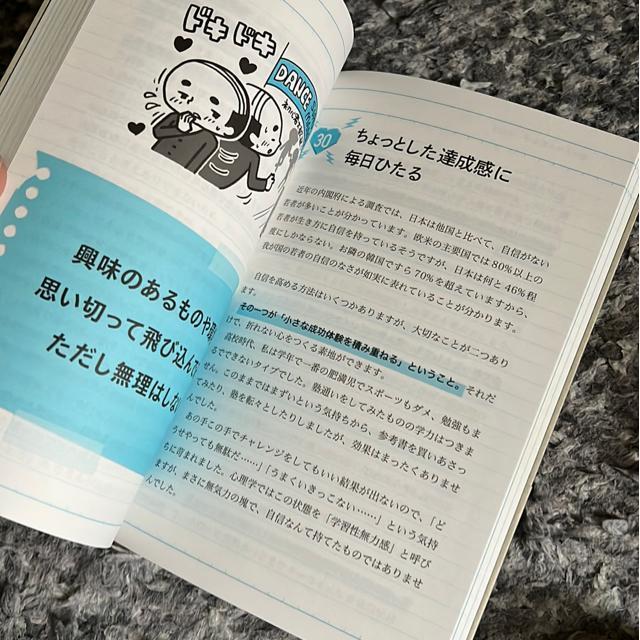 ドキドキ
DANCE
興味のあるものや
思い切って飛び込んで
ただし無理はしな
30
ちょっとした達成感に
毎日ひたる
近年の内閣府による調査では、日本は他国と比べて、自信がない
若者が多いことが分かっています。欧米の主要国では80%以上の
若者が生き方に自信を持っているそうですが、日本は何と46%程
度にしかならない。お隣の韓国ですら70%を超えていますから、
我が国の若者の自信のなさが如実に表れていることが分かります。
自信を高める方法はいくつかありますが、大切なことが二つあり
ます。
その一つが「小さな成功体験を積み重ねる」ということ。それだ
けで、折れない心をつくる素地ができます。
高校時代、私は学年で一番の肥満児でスポーツもダメ、勉強もま
るでできないタイプでした。塾通いをしてみたものの学力はつきま
せん。このままではまずいという気持ちから、参考書を買いあさっ
てみたり、塾を転々としたりしましたが、効果はまったくありませ
んでした。
あの手この手でチャレンジをしてもいい結果が出ないので、「ど
うせやっても無駄だ……」「うまくいきっこない……」という気持
ちに苛まれました。心理学ではこの状態を「学習性無力感」と呼び
ますが、まさに無気力の塊で、自信なんて持てたものではありませ
んでした。